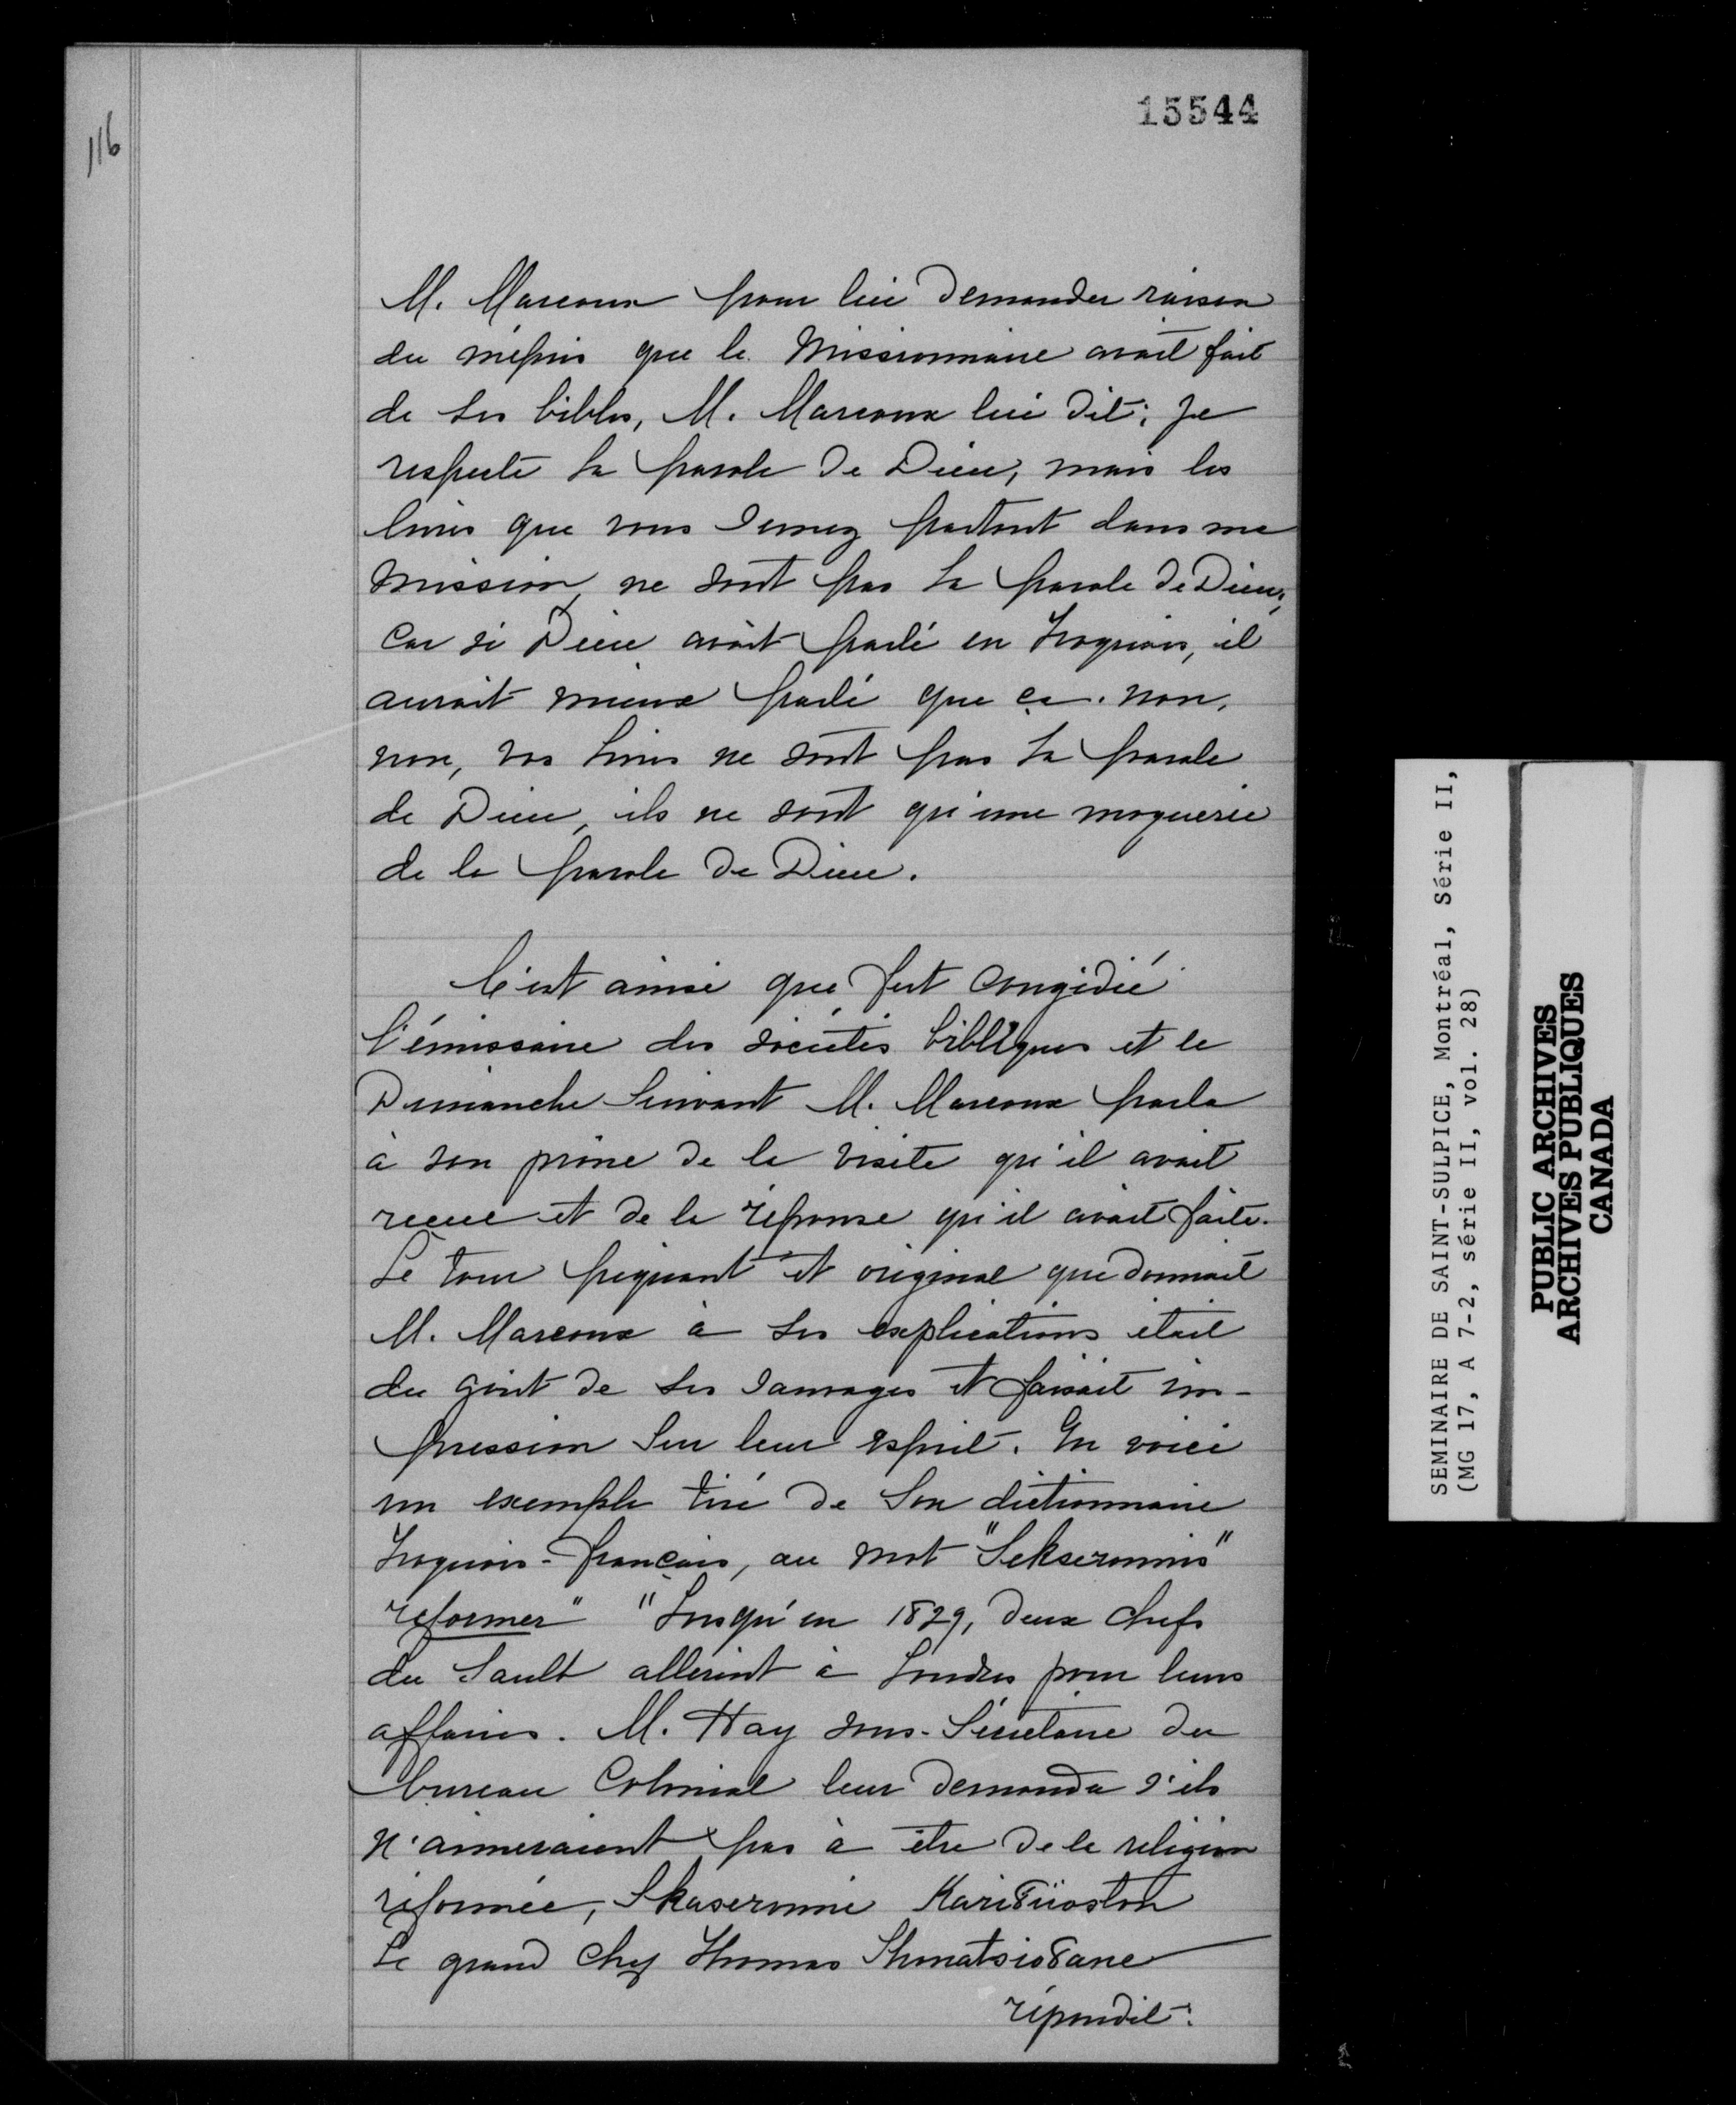 15544
116
M. Marcoux pour lui demander raison
du mépris que le Missionnaire avait fait
de ses bibles, M. Marcoux lui dit: Je
respecte la parole de Dieu, mais les
livres que vous semez partout dans ma
Mission, ne sont pas la parole de Dieu;
Car si Dieu avait parlé en Iroquois, il
aurait mieux parlé que ça. non,
non, vos livres ne sont pas la parole
de Dieu, ils ne sont qu'une moquerie
de la parole de Dieu.
C'est ainsi que fut congédié
l'émissaire des sociétés bibliques et le
Dimanche suivant M. Marcoux parla
à son prône de la visite qu'il avait
reçue et de la réponse qu'il avait faite.
Le tour piquant et original que donnait
M. Marcoux à ses explications était
du goût de ses sauvages et faisait im-
pression sur leur esprit. En voici
un exemple tiré de son dictionnaire
Iroquois-français, au mot "Sekseronnis"
reformer" "Lorsqu'en 1829, deux chefs
du Sault allèrent à Londres pour leurs
affaires. M. Hay sous-Sécretaire du
bureau Colonial leur demanda s'ils
n'aimeraient pas à être de la religion
réformée, Skaseronni Kari8iioston
Le grand Chef Thomas Shonatsio8ane
répondit:
SEMINAIRE DE SAINT-SULPICE, Montréal, Série II,
(MG 17, A 7-2, série II, vol. 28)
PUBLIC ARCHIVES
ARCHIVES PUBLIQUES
CANADA